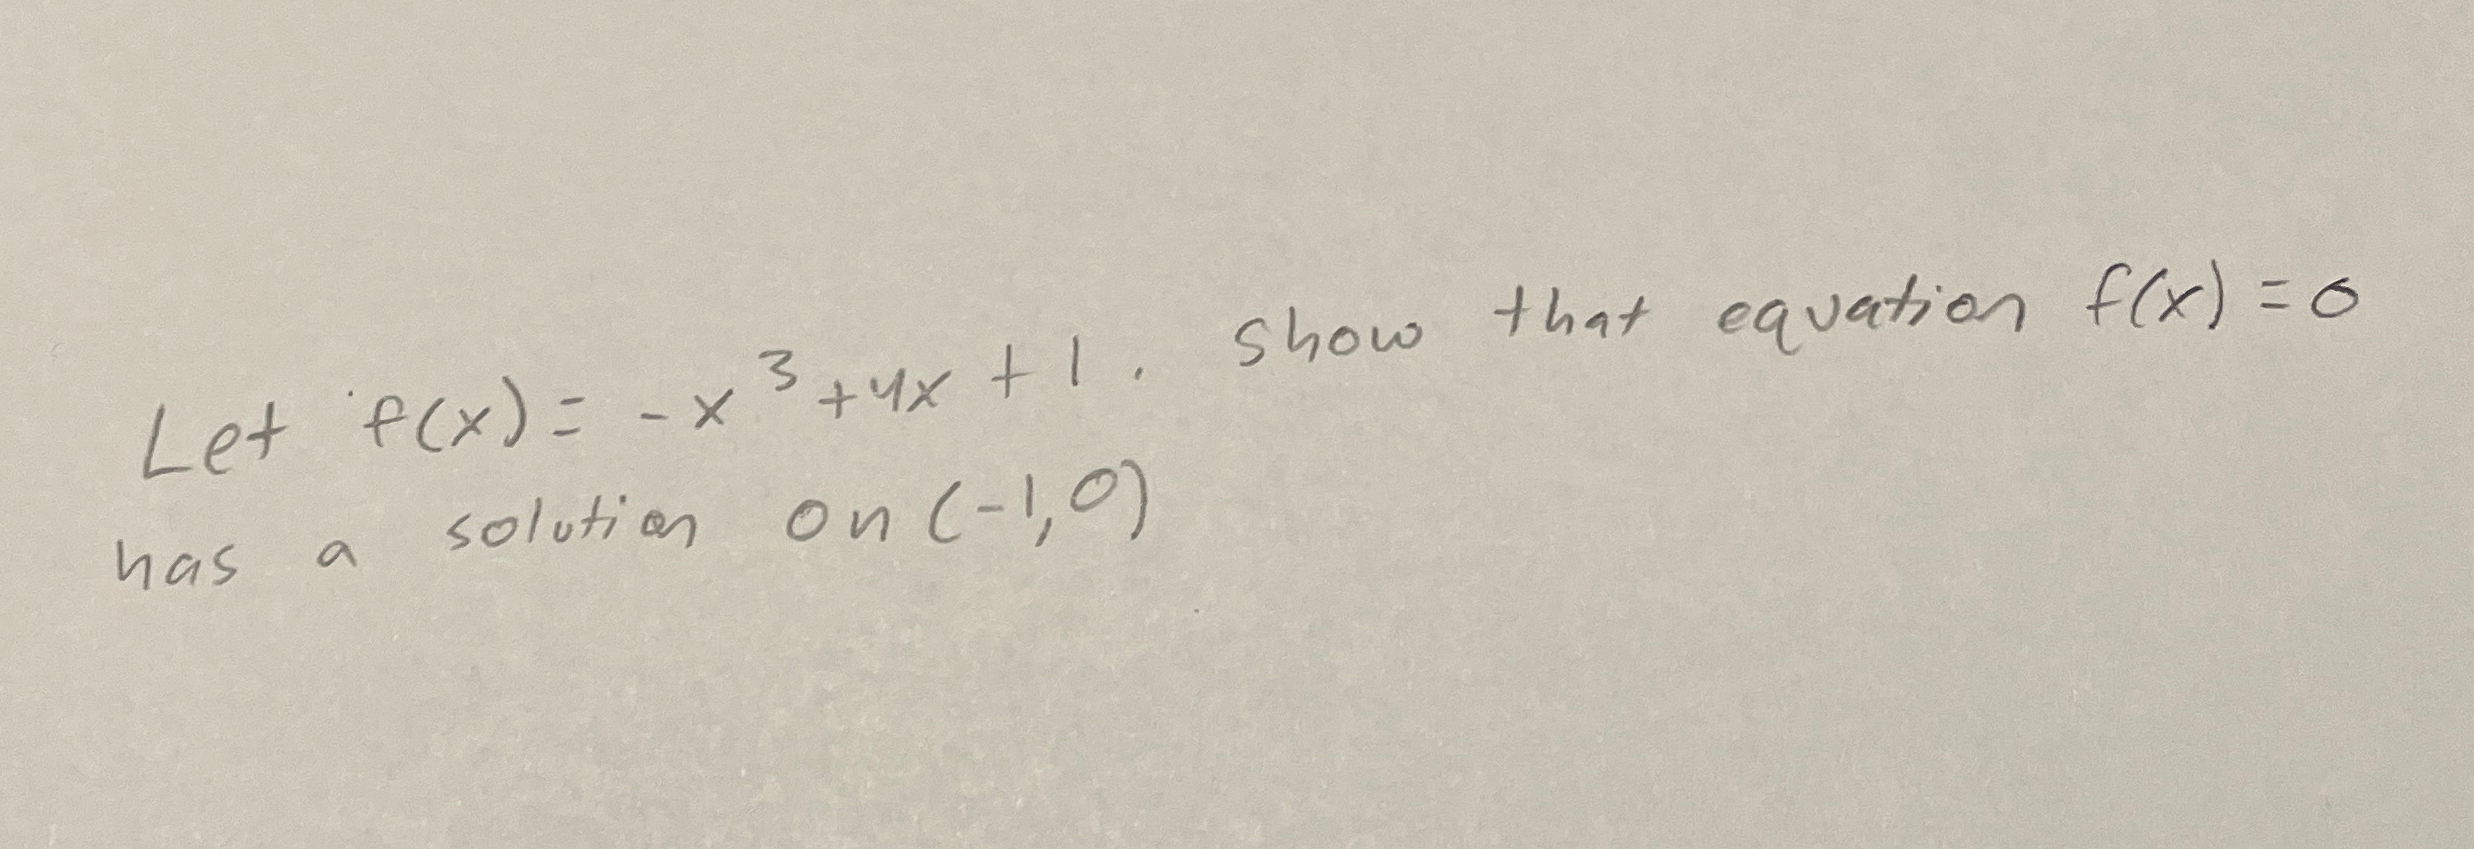 Let f(x) = -x³ + 4x + 1. Show that equation f(x) = 0
has a solution on (-1,0)